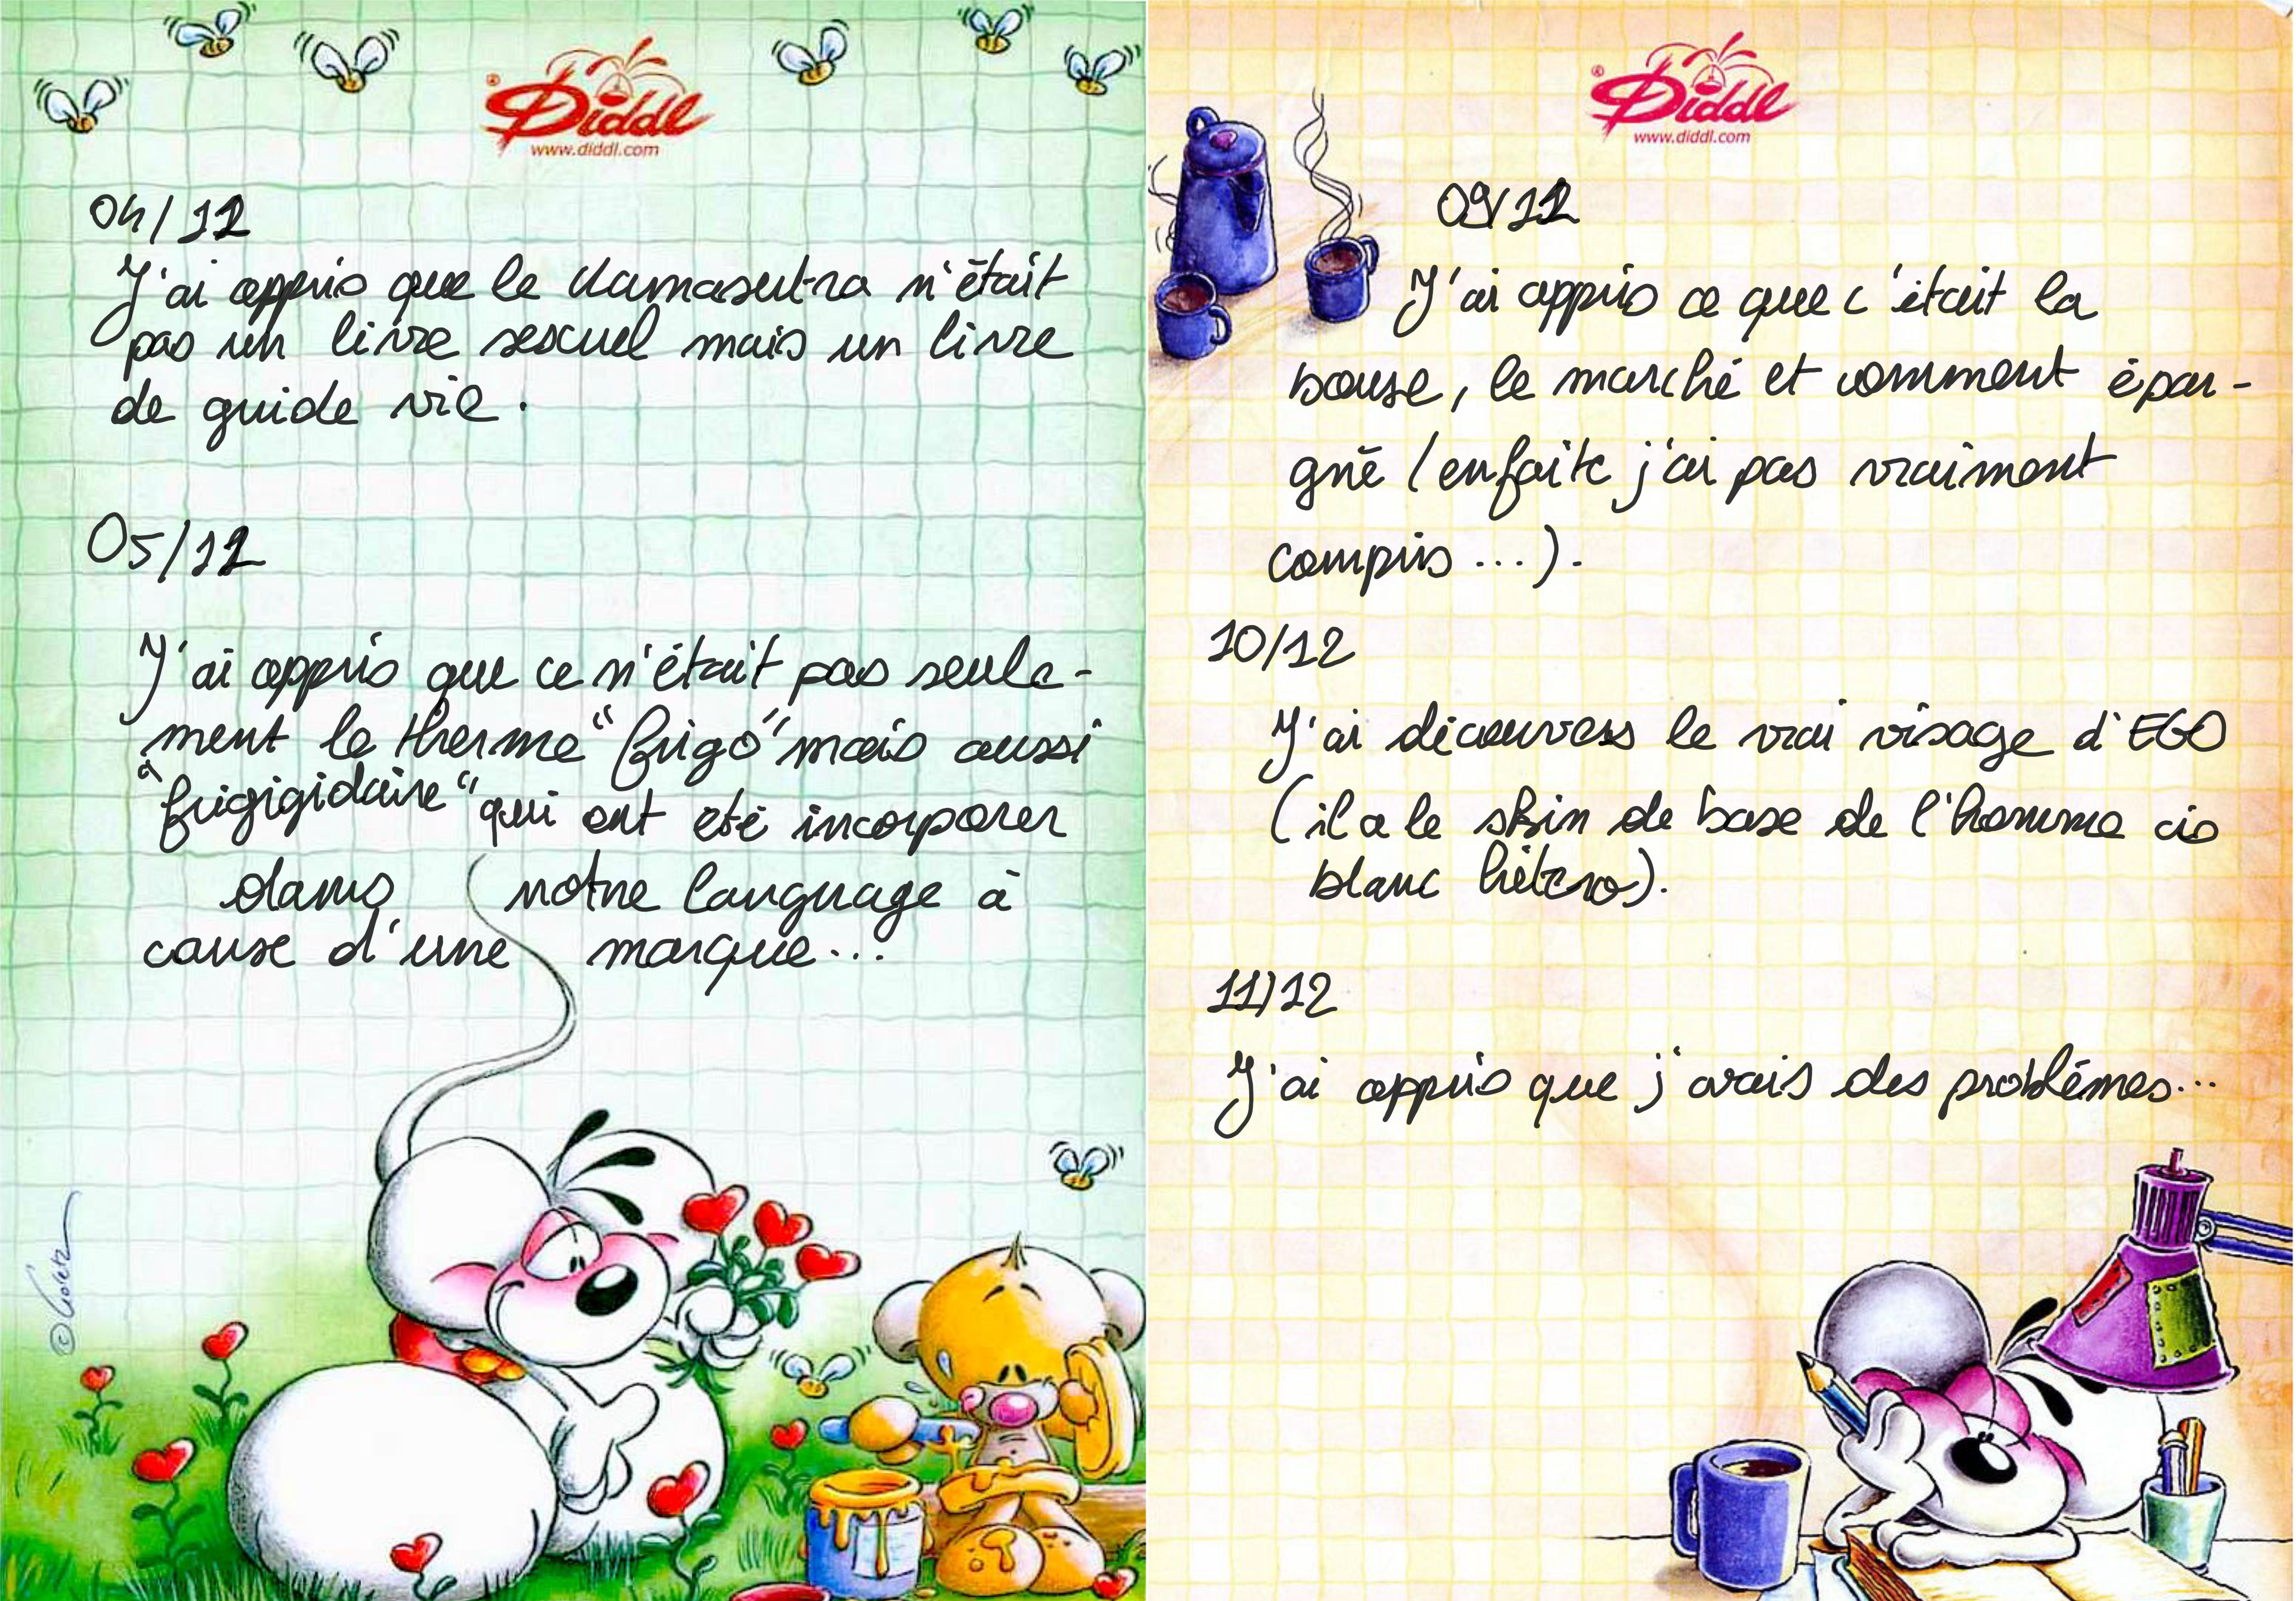 Diddl
www.diddl.com
04/12
J'ai appris que le Kamasutra n'était
pas un livre sexuel mais un livre
de guide vie.
05/12
J'ai appris que ce n'était pas seule-
ment le therme "frigo" mais aussi
"frigigidaire" qui ont été incorporer
dans notre language à
cause d'une marque...
© Goletz
Diddl
www.diddl.com
09/12
J'ai appris ce que c'était la
bourse, le marché et comment épar-
gné (enfaite j'ai pas vraiment
compris...).
10/12
J'ai découvers le vrai visage d'EGO
(il a le skin de base de l'homme cis
blanc hétéro).
11/12
J'ai appris que j'avais des problèmes...